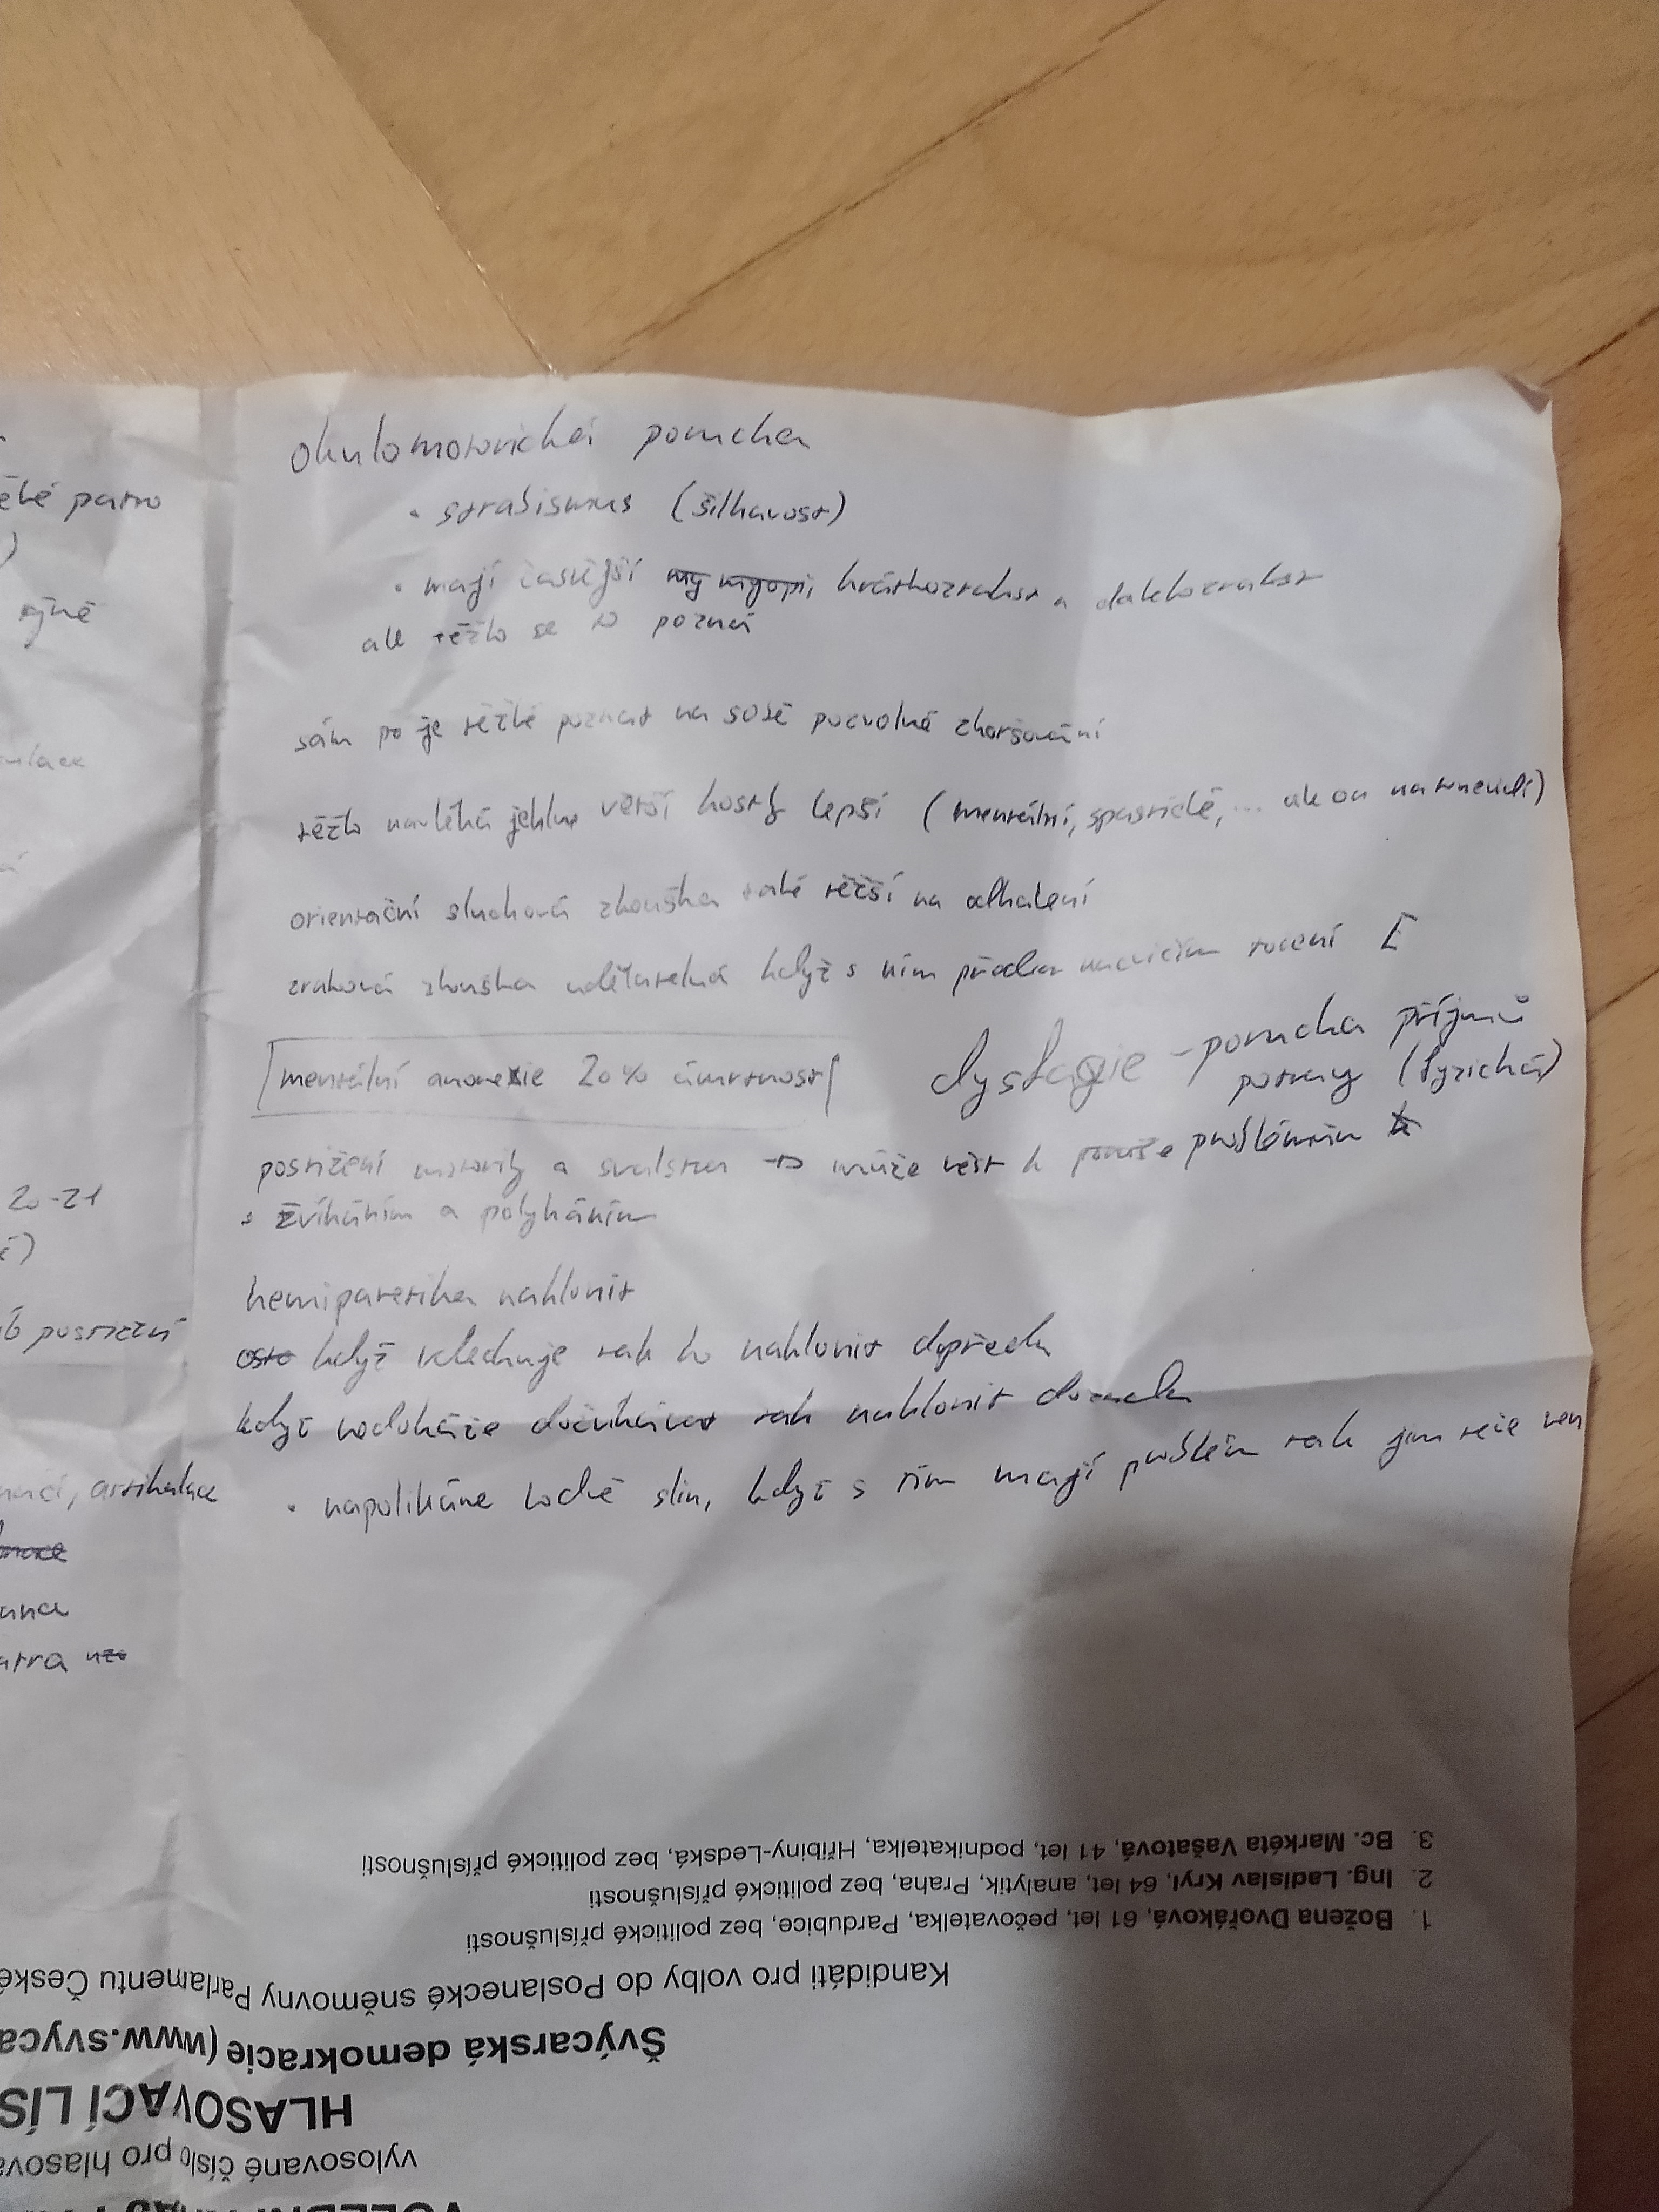 okulomotorická porucha
• strabismus (šilhavost)
• mají častější my myopi, krátkozrakost a dalekozrakost
ale těžko se to pozná
sám po je těžké poznat na sobě pozvolné zhoršování
těžko navléká jehlu větší kostky lepší (mentální, spastické, ... ale on
orientační sluchová zkouška také těžší na odhalení
zraková zkouška udělatelná když s ním předem nacvičím točení E
mentální anorexie 20% úmrtnost
dysfagie - porucha příjmu
potravy (fyzická)
postižení motoriky a svalstva → může vést k problémům
s žvýkáním a polykáním
hemiparetika naklonit
když sleduje tak ho naklonit dopředu
když nedokáže tak naklonit dozadu
• napolikáme hodně slin, když s tím mají problém tak jim teče ven
ěté patro
)
20-21
é)
postižení
artikulace
3. Bc. Markéta Vašatová, 41 let, podnikatelka, Hřibiny-Ledská, bez politické příslušnosti
2. Ing. Ladislav Kryl, 64 let, analytik, Praha, bez politické příslušnosti
1. Božena Dvořáková, 61 let, pečovatelka, Pardubice, bez politické příslušnosti
Kandidáti pro volby do Poslanecké sněmovny Parlamentu České
Švýcarská demokracie (www.svyca
HLASOVACÍ LÍS
vylosované číslo pro hlasova